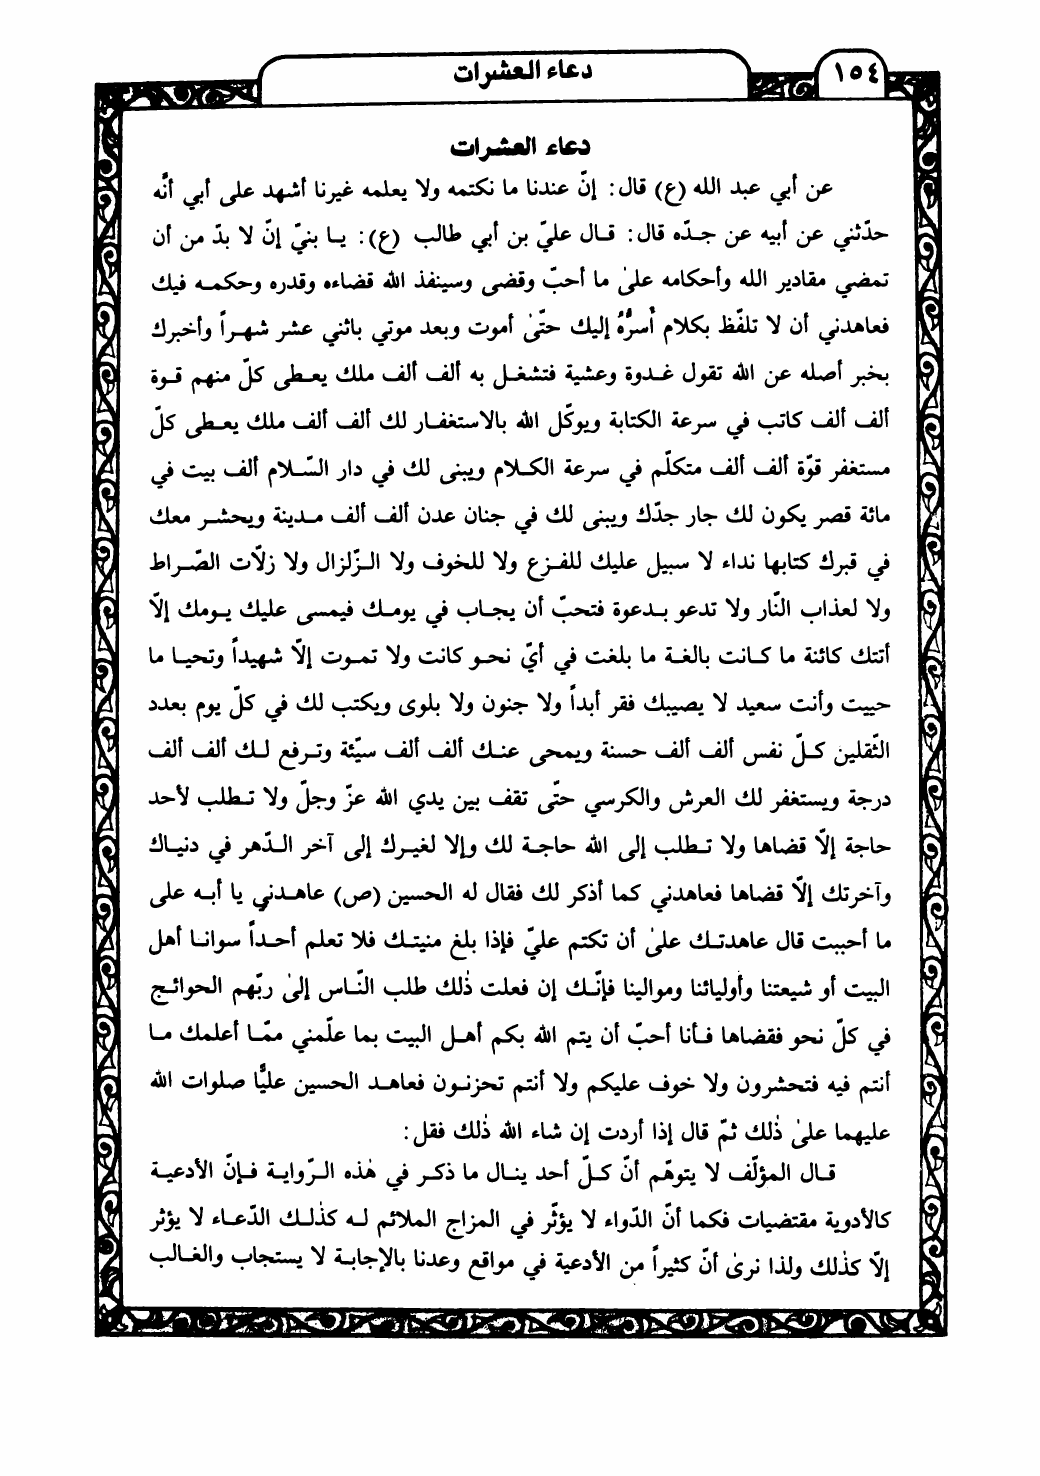 ١٥٤
دعاء العشرات
دعاء العشرات
عن أبي عبد الله (ع) قال: إنّ عندنا ما نكتمه ولا يعلمه غيرنا أشهد على أبي أنّه
حدّثني عن أبيه عن جدّه قال: قال عليّ بن أبي طالب (ع): يا بنيّ إنّ لا بدّ من أن
تمضي مقادير الله وأحكامه علىٰ ما أحبّ وقضى وسينفذ الله قضاءه وقدره وحكمه فيك
فعاهدني أن لا تلفّظ بكلام أُسرُّهُ إليك حتّىٰ أموت وبعد موتي باثني عشر شهراً وأخبرك
بخبر أصله عن الله تقول غدوة وعشية فتشغل به ألف ألف ملك يعطى كلّ منهم قوة
ألف ألف كاتب في سرعة الكتابة ويوكّل الله بالاستغفار لك ألف ألف ملك يعطى كلّ
مستغفر قوّة ألف ألف متكلّم في سرعة الكلام ويبنى لك في دار السّلام ألف بيت في
مائة قصر يكون لك جار جدّك ويبنى لك في جنان عدن ألف ألف مدينة ويحشر معك
في قبرك كتابها نداء لا سبيل عليك للفزع ولا للخوف ولا الزّلزال ولا زلّات الصّراط
ولا لعذاب النّار ولا تدعو بدعوة فتحبّ أن يجاب في يومك فيمسى عليك يومك إلّا
أتتك كائنة ما كانت بالغة ما بلغت في أيّ نحو كانت ولا تموت إلّا شهيداً وتحيا ما
حييت وأنت سعيد لا يصيبك فقر أبداً ولا جنون ولا بلوى ويكتب لك في كلّ يوم بعدد
الثّقلين كلّ نفس ألف ألف حسنة ويمحى عنك ألف ألف سيّئة وترفع لك ألف ألف
درجة ويستغفر لك العرش والكرسي حتّى تقف بين يدي الله عزّ وجلّ ولا تطلب لأحد
حاجة إلّا قضاها ولا تطلب إلى الله حاجة لك وإلا لغيرك إلى آخر الدّهر في دنياك
وآخرتك إلّا قضاها فعاهدني كما أذكر لك فقال له الحسين (ص) عاهدني يا أبه على
ما أحببت قال عاهدتك علىٰ أن تكتم عليّ فإذا بلغ منيتك فلا تعلم أحداً سوانا أهل
البيت أو شيعتنا وأوليائنا وموالينا فإنّك إن فعلت ذٰلك طلب النّاس إلىٰ ربّهم الحوائج
في كلّ نحو فقضاها فأنا أحبّ أن يتم الله بكم أهل البيت بما علّمني ممّا أعلمك ما
أنتم فيه فتحشرون ولا خوف عليكم ولا أنتم تحزنون فعاهد الحسين عليًّا صلوات الله
عليهما علىٰ ذٰلك ثمّ قال إذا أردت إن شاء الله ذٰلك فقل:
قال المؤلّف لا يتوهّم أنّ كلّ أحد ينال ما ذكر في هٰذه الرّواية فإنّ الأدعية
كالأدوية مقتضيات فكما أنّ الدّواء لا يؤثّر في المزاج الملائم له كذٰلك الدّعاء لا يؤثر
إلّا كذٰلك ولذا نرىٰ أنّ كثيراً من الأدعية في مواقع وعدنا بالإجابة لا يستجاب والغالب